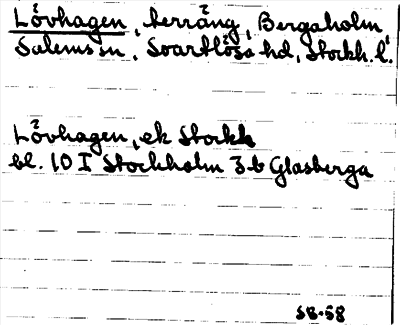 Lövhagen, terräng, Bergaholm,
Salems sn, Svartlösa hd, Stockh. l.
Lövhagen, ek Stockh
bl. 10 I Stockholm 3 b Glasberga
SB-58